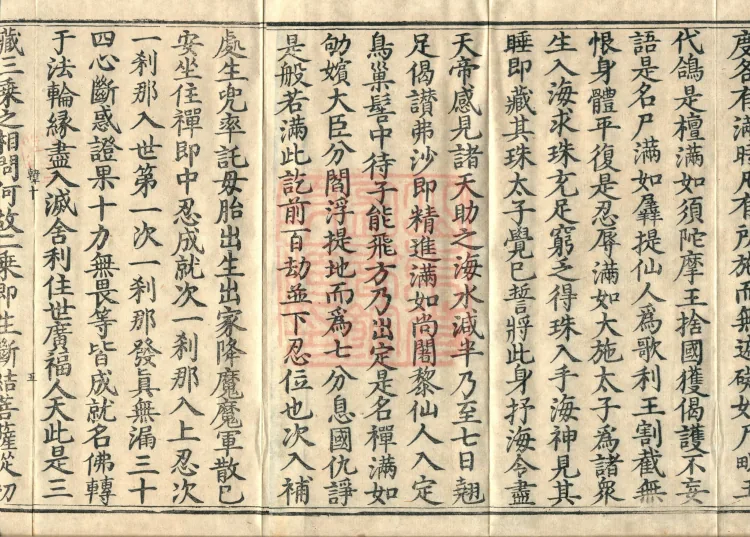 度各有滿時凡有所施而無遮礙如尸毗王
代鴿是檀滿如須陀摩王捨國獲偈護不妄
語是名尸滿如羼提仙人爲歌利王割截無
恨身體平復是忍辱滿如大施太子爲諸衆
生入海求珠充足窮乏得珠入手海神見其
睡即藏其珠太子覺已誓將此身抒海令盡
天帝感見諸天助之海水減半乃至七日翹
足偈讚弗沙即精進滿如尚闍黎仙人入定
鳥巢髻中待子能飛方乃出定是名禪滿如
劬嬪大臣分閻浮提地而爲七分息國仇諍
是般若滿此訖前百劫並下忍位也次入補
處生兜率託母胎出生出家降魔魔軍散已
安坐住禪即中忍成就次一刹那入上忍次
一刹那入世第一次一刹那發真無漏三十
四心斷惑證果十力無畏等皆成就名佛轉
于法輪緣盡入滅舍利住世廣福人天此是三
五
藏三乘之相問何故二乘即生斷結菩薩從初